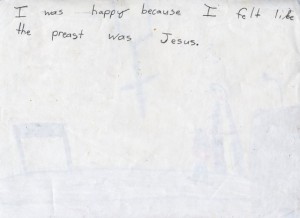 I was happy because I felt like
the preast was Jesus.